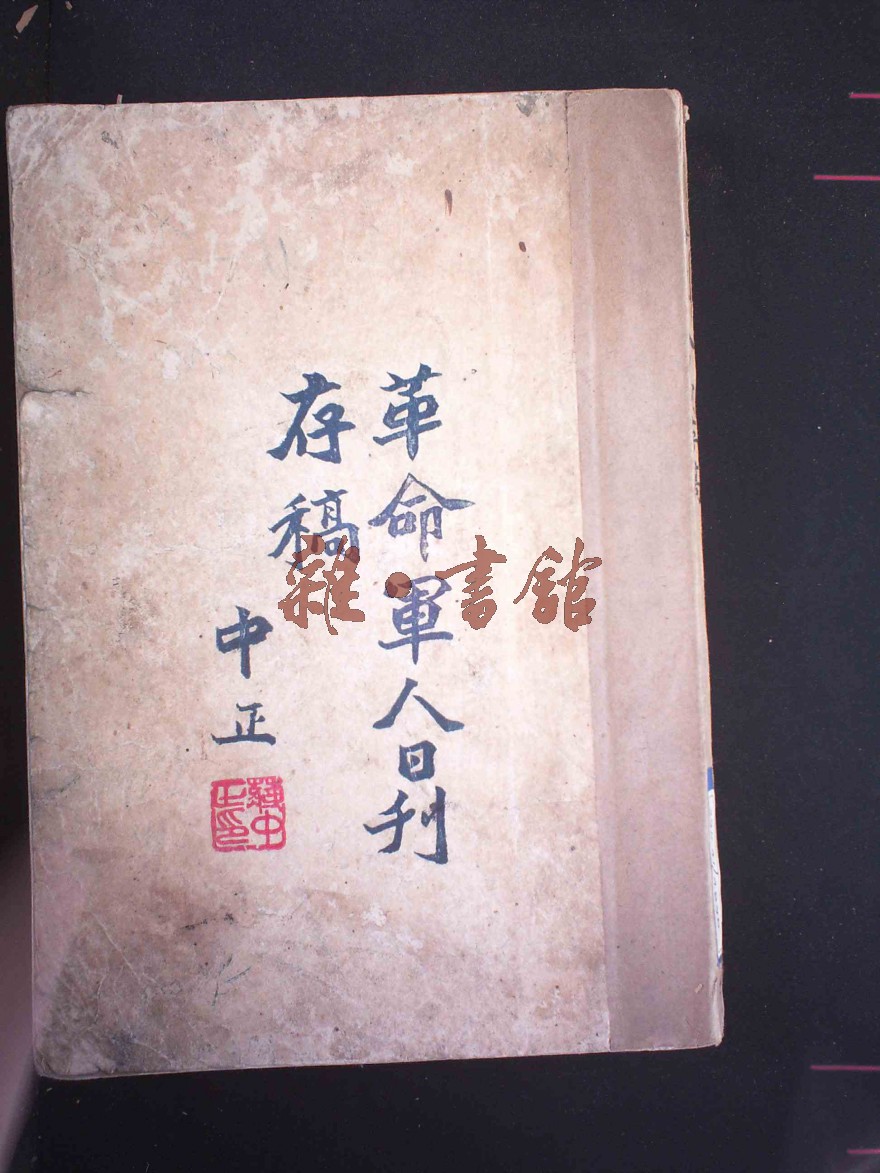 革命軍人日刊
存稿
中正
蔣中正印
雜·書館